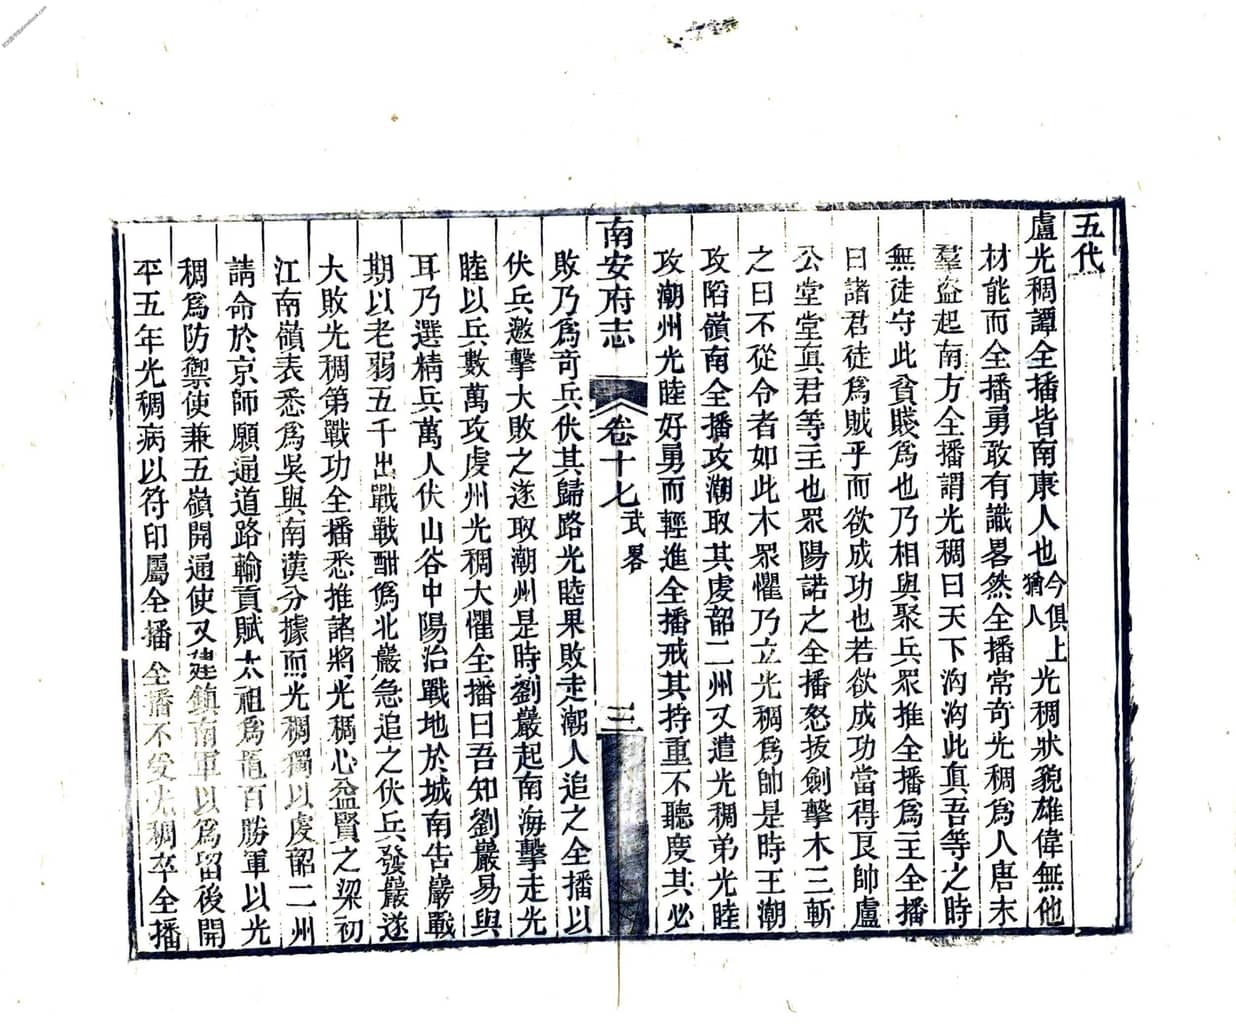 五代
盧光稠譚全播皆南康人也今俱上猶人光稠狀貌雄偉無他
材能而全播勇敢有識畧然全播常奇光稠爲人唐末
羣盜起南方全播謂光稠曰天下洶洶此眞吾等之時
無徒守此貧賤爲也乃相與聚兵眾推全播爲主全播
曰諸君徒爲賊乎而欲成功也若欲成功當得良帥盧
公堂堂眞君等主也眾陽諾之全播怒拔劍擊木三斬
之曰不從令者如此木眾懼乃立光稠爲帥是時王潮
攻陷嶺南全播攻潮取其虔韶二州又遣光稠弟光睦
攻潮州光睦好勇而輕進全播戒其持重不聽度其必
南安府志 卷十七 武畧 三
敗乃爲奇兵伏其歸路光睦果敗走潮人追之全播以
伏兵邀擊大敗之遂取潮州是時劉巖起南海擊走光
睦以兵數萬攻虔州光稠大懼全播曰吾知劉巖易與
耳乃選精兵萬人伏山谷中陽治戰地於城南告巖戰
期以老弱五千出戰戰酣僞北巖急追之伏兵發巖遂
大敗光稠第戰功全播悉推諸將光稠心益賢之梁初
江南嶺表悉爲吳與南漢分據而光稠獨以虔韶二州
請命於京師願通道路輸貢賦太祖爲置百勝軍以光
稠爲防禦使兼五嶺開通使又建鎮南軍以爲留後開
平五年光稠病以符印屬全播全播不受光稠卒全播